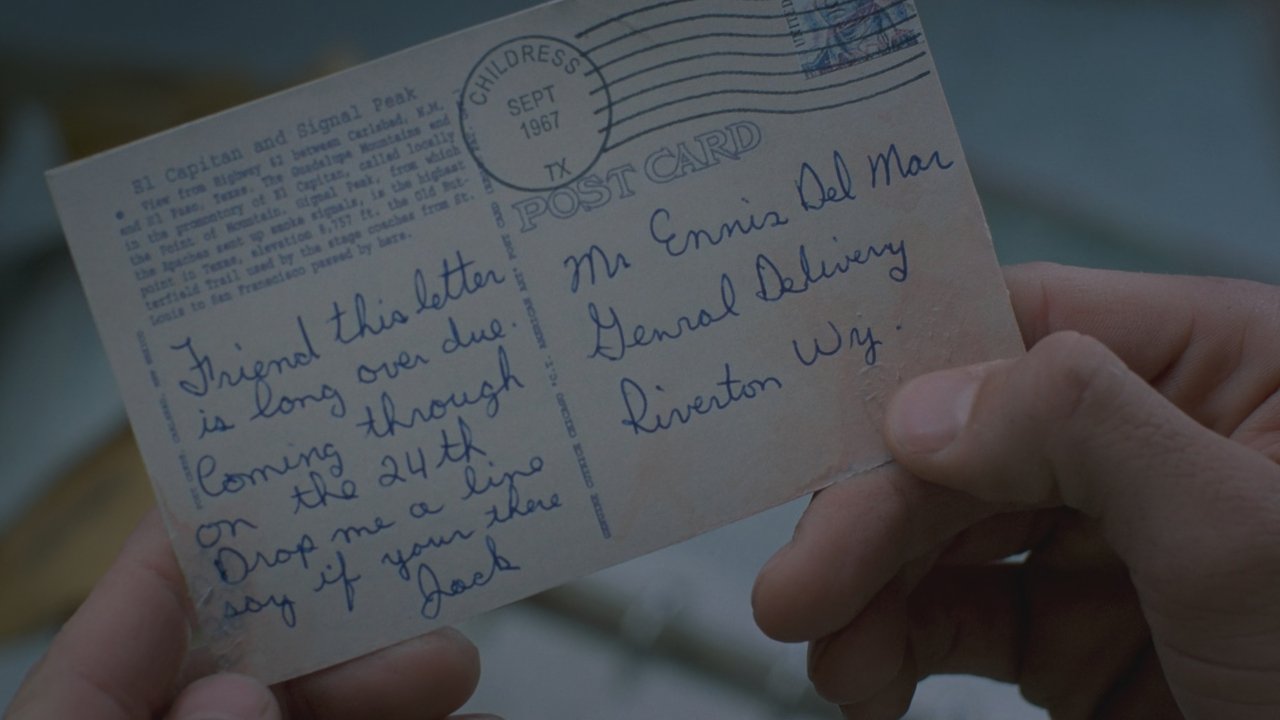 El Capitan and Signal Peak
View from Highway 62 between Carlsbad, N.M.
and El Paso, Texas. The Guadalupe Mountains and
in the promontory of El Capitan, called locally
the Point of Mountain. Signal Peak, from which
the Apaches sent up smoke signals, is the highest
point in Texas, elevation 8,757 ft. the Old But-
terfield Trail used by the stage coaches from St.
Louis to San Francisco passed by here.
Friend this letter
is long over due.
Coming through
on the 24th
Drop me a line
say if your there
Jack
CHILDRESS
SEPT
1967
TX
UNITED
POST CARD
Mr Ennis Del Mar
Genral Delivery
Riverton Wy.